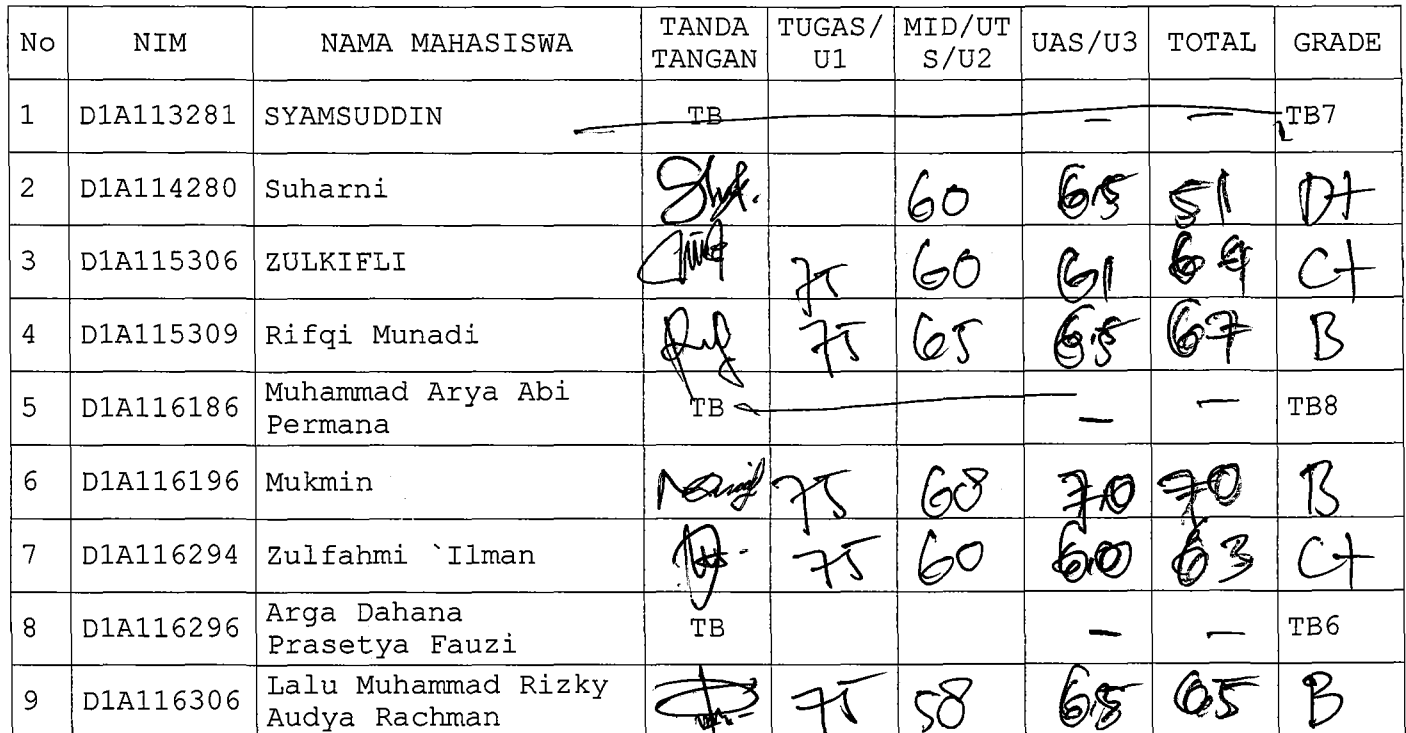 No NIM NAMA MAHASISWA TANDA TANGAN TUGAS/ U1 MID/UT S/U2 UAS/U3 TOTAL GRADE
1 D1A113281 SYAMSUDDIN TB — — TB7
2 D1A114280 Suharni 60 65 51 D+
3 D1A115306 ZULKIFLI 75 60 61 C+
4 D1A115309 Rifqi Munadi 75 65 65 67 B
5 D1A116186 Muhammad Arya Abi Permana TB — — TB8
6 D1A116196 Mukmin 75 68 70 70 B
7 D1A116294 Zulfahmi `Ilman 75 60 60 63 C+
8 D1A116296 Arga Dahana Prasetya Fauzi TB — — TB6
9 D1A116306 Lalu Muhammad Rizky Audya Rachman 75 58 65 65 B